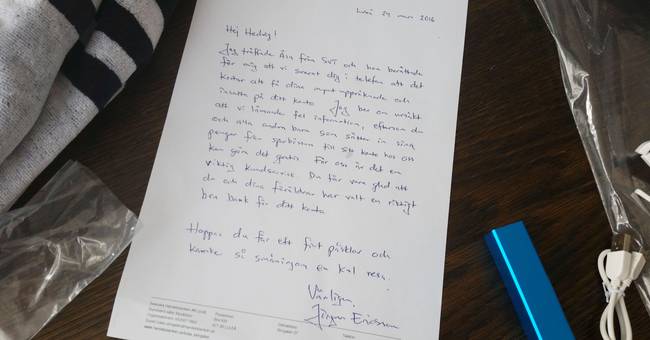 Luleå 24 mars 2016
Hej Hedvig!
Jag träffade Åsa från SVT och hon berättade
för mig att vi svarat dig i telefon att det
kostar att få dina mynt uppräknade och
insatta på ditt konto. Jag ber om ursäkt
att vi lämnade fel information, eftersom du
och alla andra barn som sätter in sina
pengar från sparbössan till sitt konto hos oss
kan göra det gratis. För oss är det en
viktig kundservice. Du får vara glad att
du och dina föräldrar har valt en riktigt
bra bank för ditt konto
Hoppas du får ett fint påsklov och
kanske så småningom en kul resa.
Vänligen,
Jörgen Ericsson